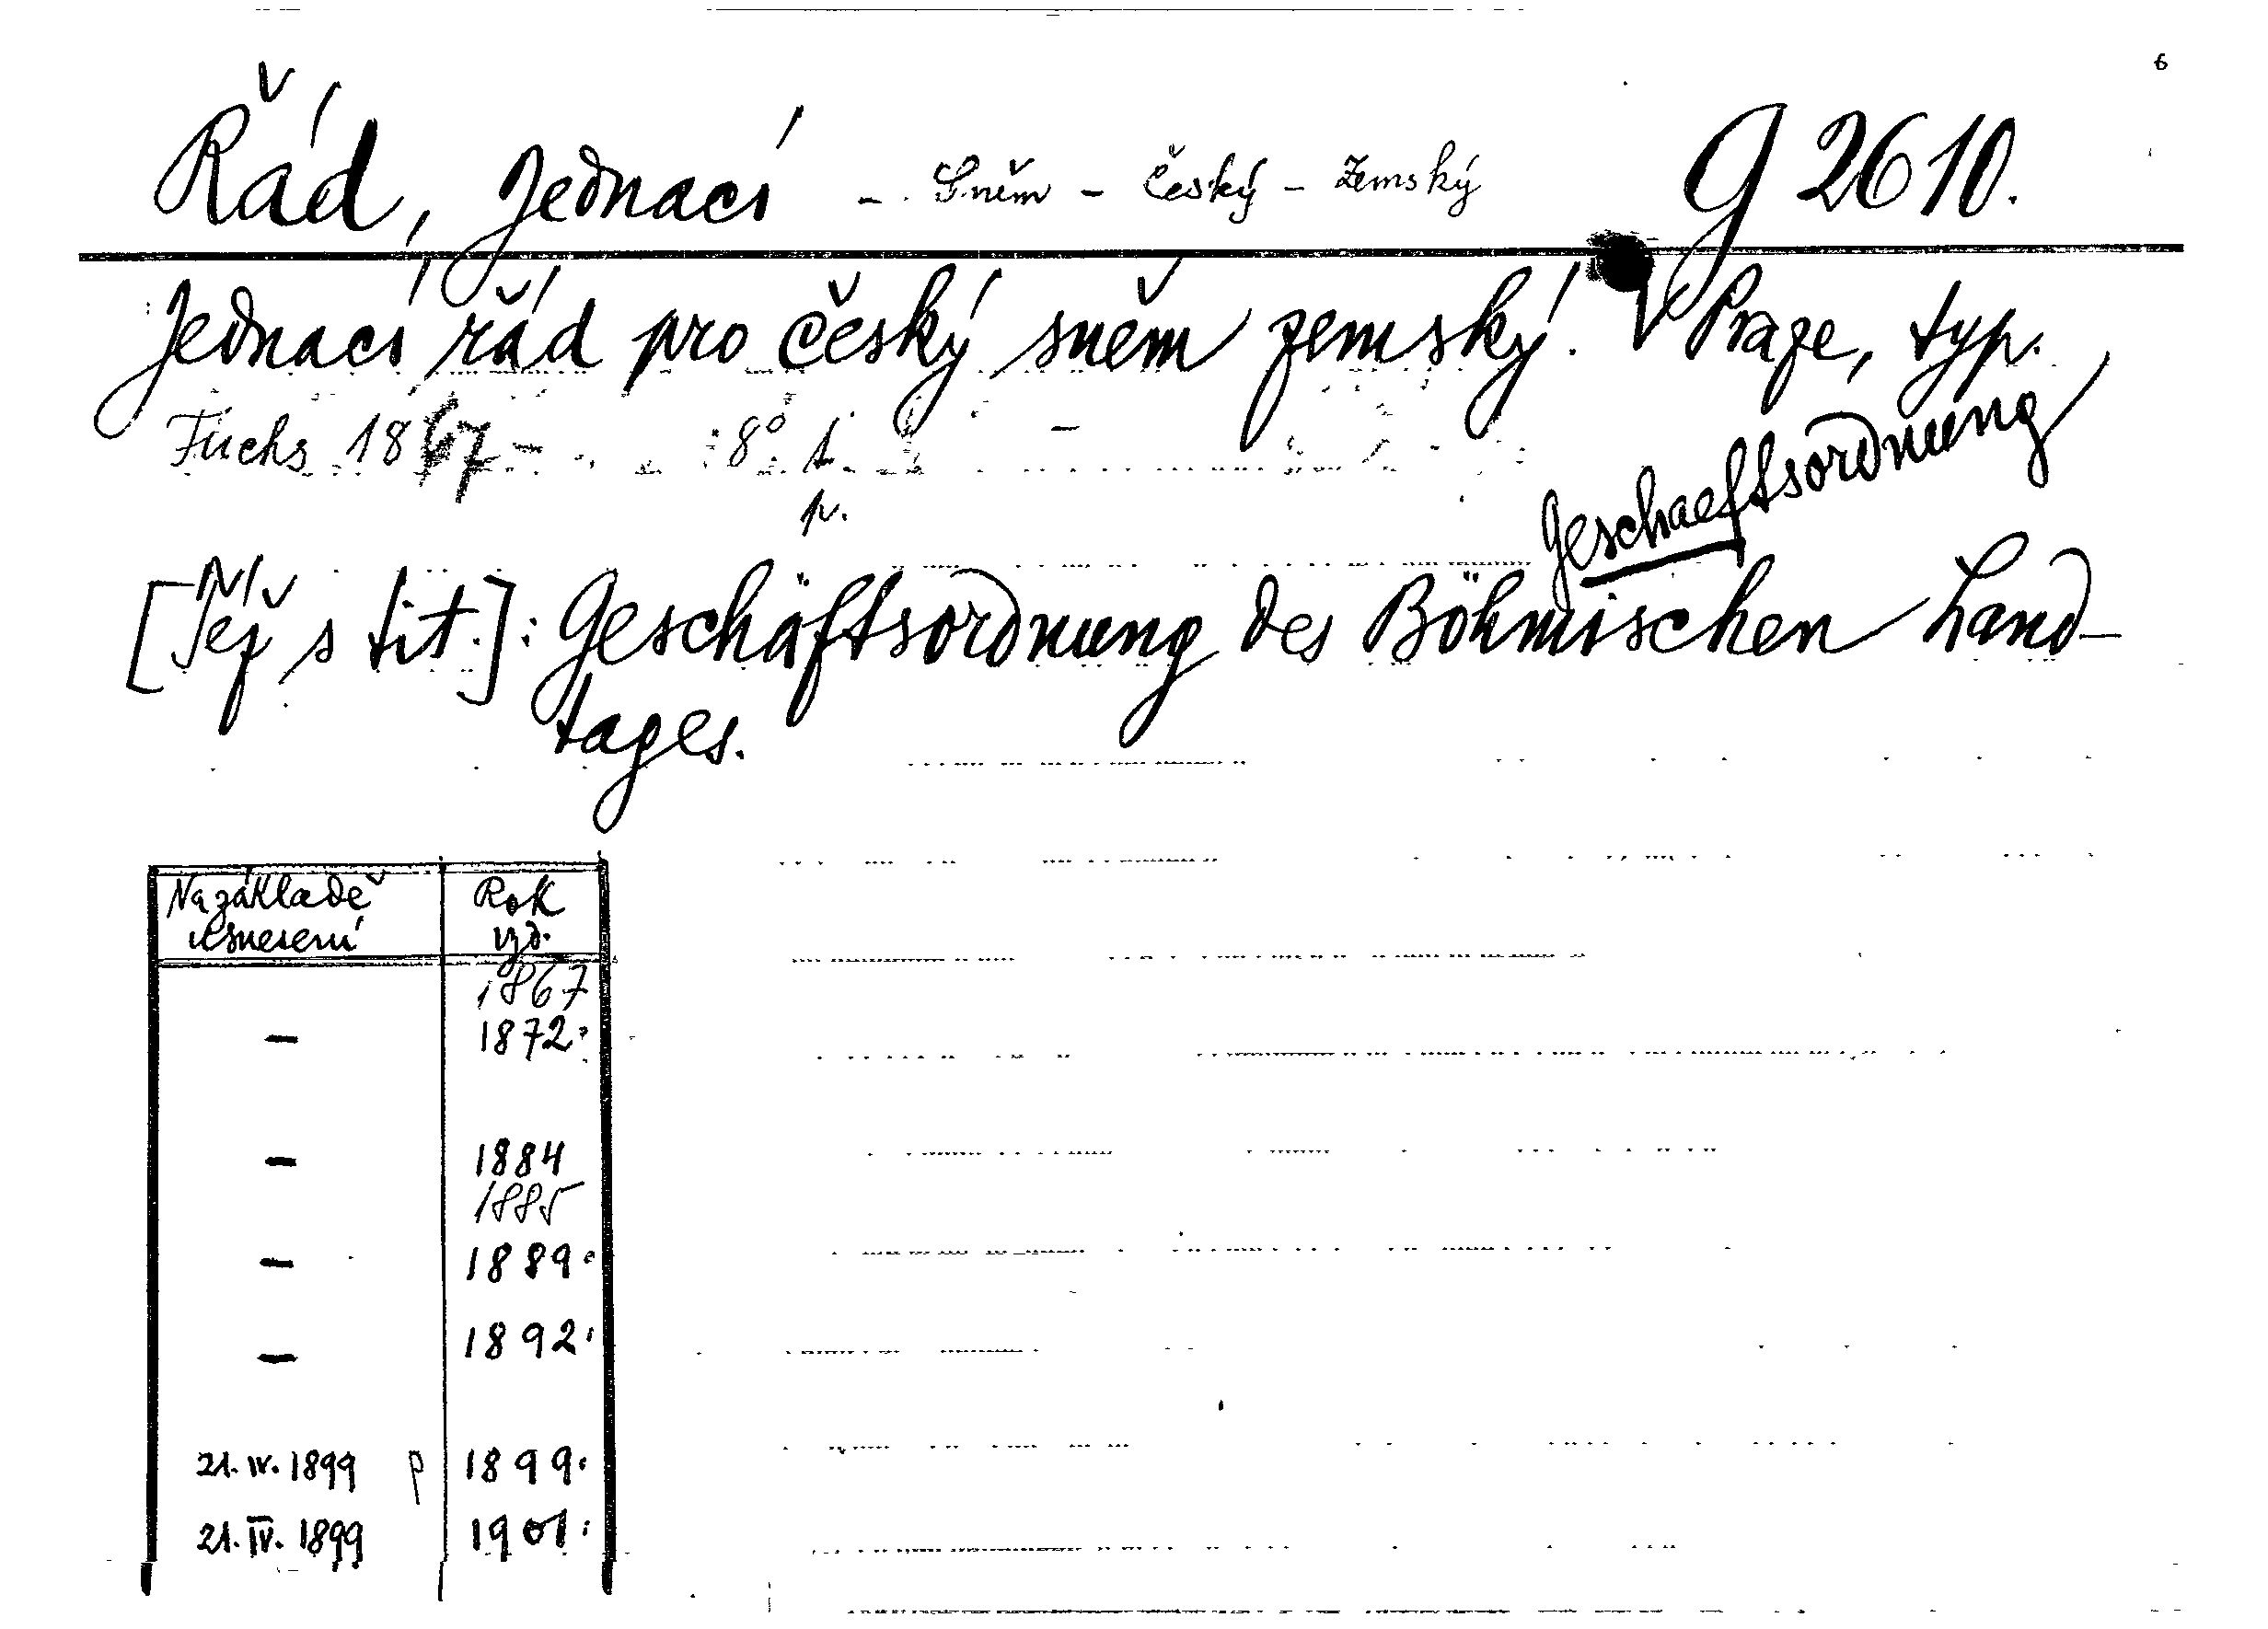 6
Řád, Jednací - Sněm - Český - Zemský G 2610.
Jednací řád pro český sněm zemský. V Praze, typ.
Fuchs 1867 - 8° 1.
p.
Geschaeftsordnung
[Též s tit.]: Geschäftsordnung des Böhmischen Land-
tages.
Na základě Rok
usnesení vyd.
1867
— 1872.
— 1884
1885
— 1889.
— 1892.
21. IV. 1899 p 1899.
21. IV. 1899 1901.